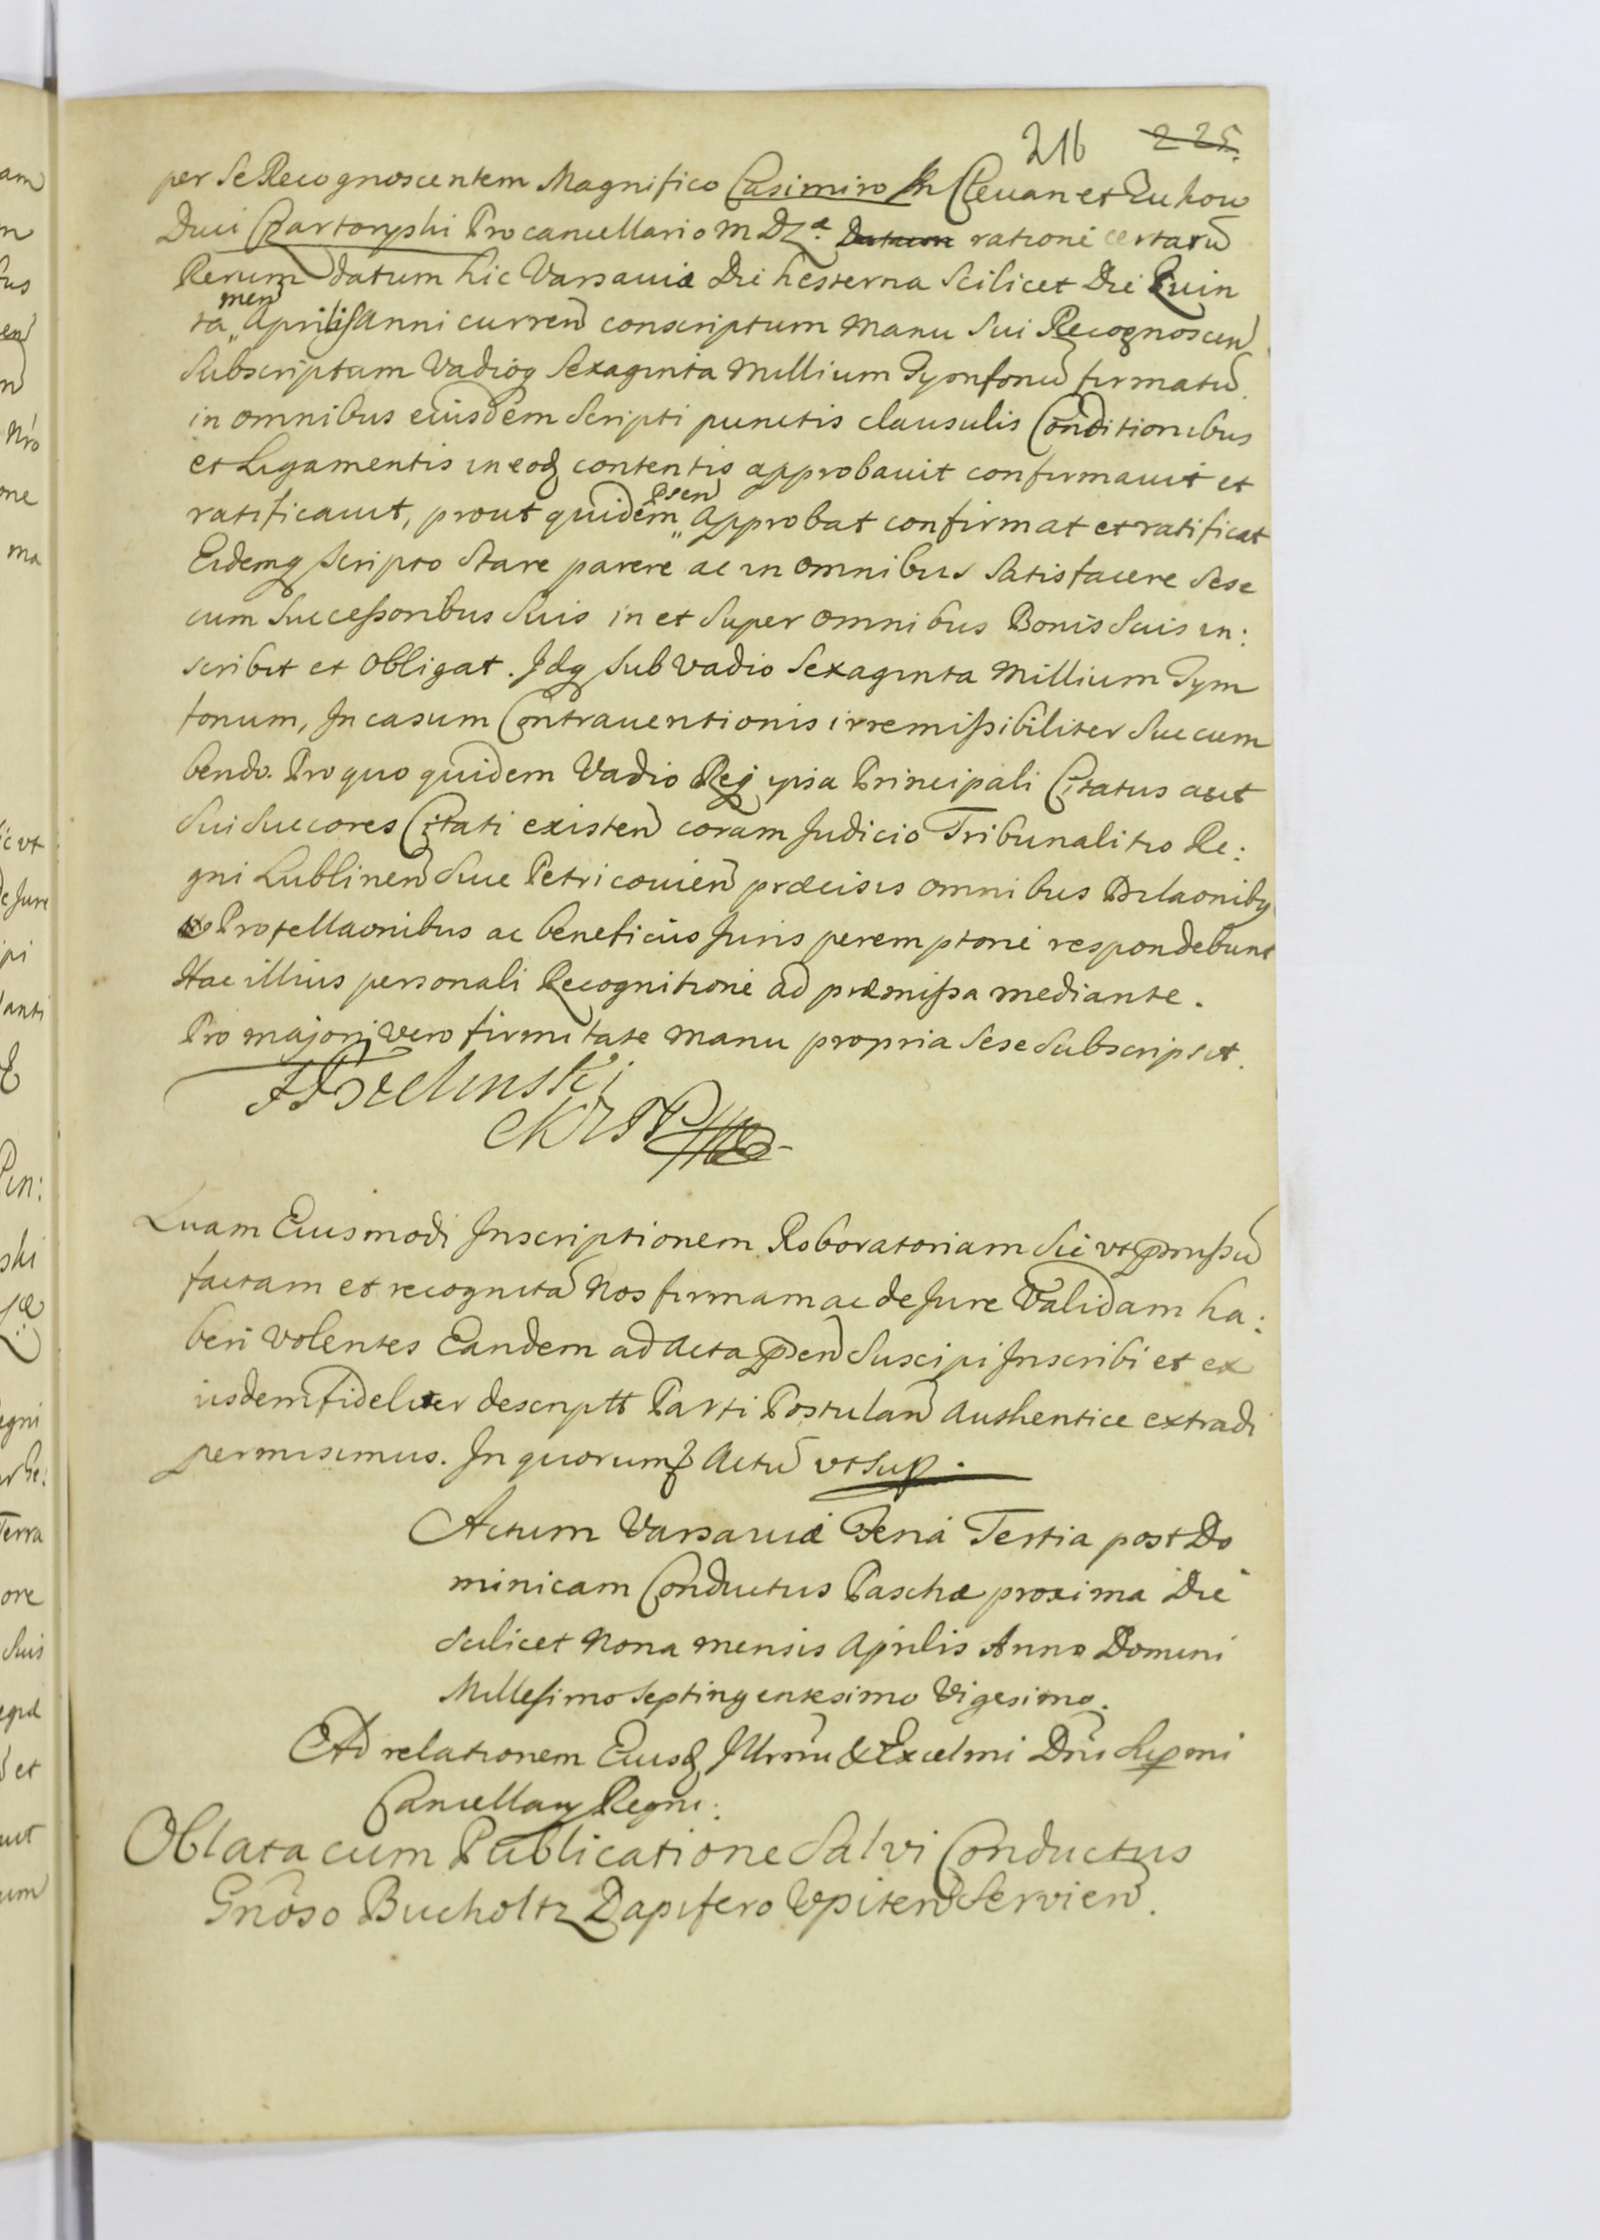 216 225.
per Se Recognoscentem Magnifico Casimiro in Clevan et Zukow
Duci Czartoryski Procancellario M D L æ. Datum rationé certarū
Rerum datum hic Varsaviæ Die hesterna Scilicet Die Quin
ta „ men Aprilis Anni curren conscriptum manu Sui Recognoscen
Subscriptam Vadioq Sexaginta Millium Tymfonū firmatū
in omnibus eiusdem Scripti punctis clausulis Conditionibus
et Ligamentis in eodq contentis approbavit confirmavit et
ratificavit, prout quidem „ Psen approbat confirmat et ratificat
Eidemq Scripto Stare parere ac in omnibus Satisfacere Sese
cum Successoribus Suis in et Super omnibus Bonis Suis in:
scribit et obligat. Idq Sub vadio Sexaginta Millium Tym
fonum, In casum Contraventionis irremissibiliter Succum
bendo. Pro quo quidem Vadio Rej ipsa Principali Citatus aut
Sui Succores Citati existen coram Judicio Tribunalitio Re:
gni Lublinen Sive Petricovien præcisis omnibus Dilaonibq
Protellaonibus ac beneficiis Juris peremptorié respondebunt
Hac illius personali Recognitioné ad præmissa mediante.
Pro majori vero firmitate manu propria Sese Subscripsit.
Quam Eiusmodi Inscriptionem Roboratoriam Sic vt pmissū
factam et recognitā Nos firmam ac de Jure Validam ha:
beri volentes Eandem ad Acta psen Suscipi Inscribi et ex
iisdem fideliter descriptt Parti Postulan Authentice extradi
permisimus. In quorum Actū vt Sup.
Actum Varsaviæ Feria Tertia post Do
minicam Conductus Paschæ proxima Die
Scilicet Nona mensis Aprilis Anno Domini
Millesimo Septingentesimo Vigesimo.
Ad relationem Eiusdq Illrmi & Excelmi Dni Supmi
Cancellarij Regni.
Oblata cum Publicatione Salvi Conductus
Gnōso Bucholtz Dapifero Upiten Servien.